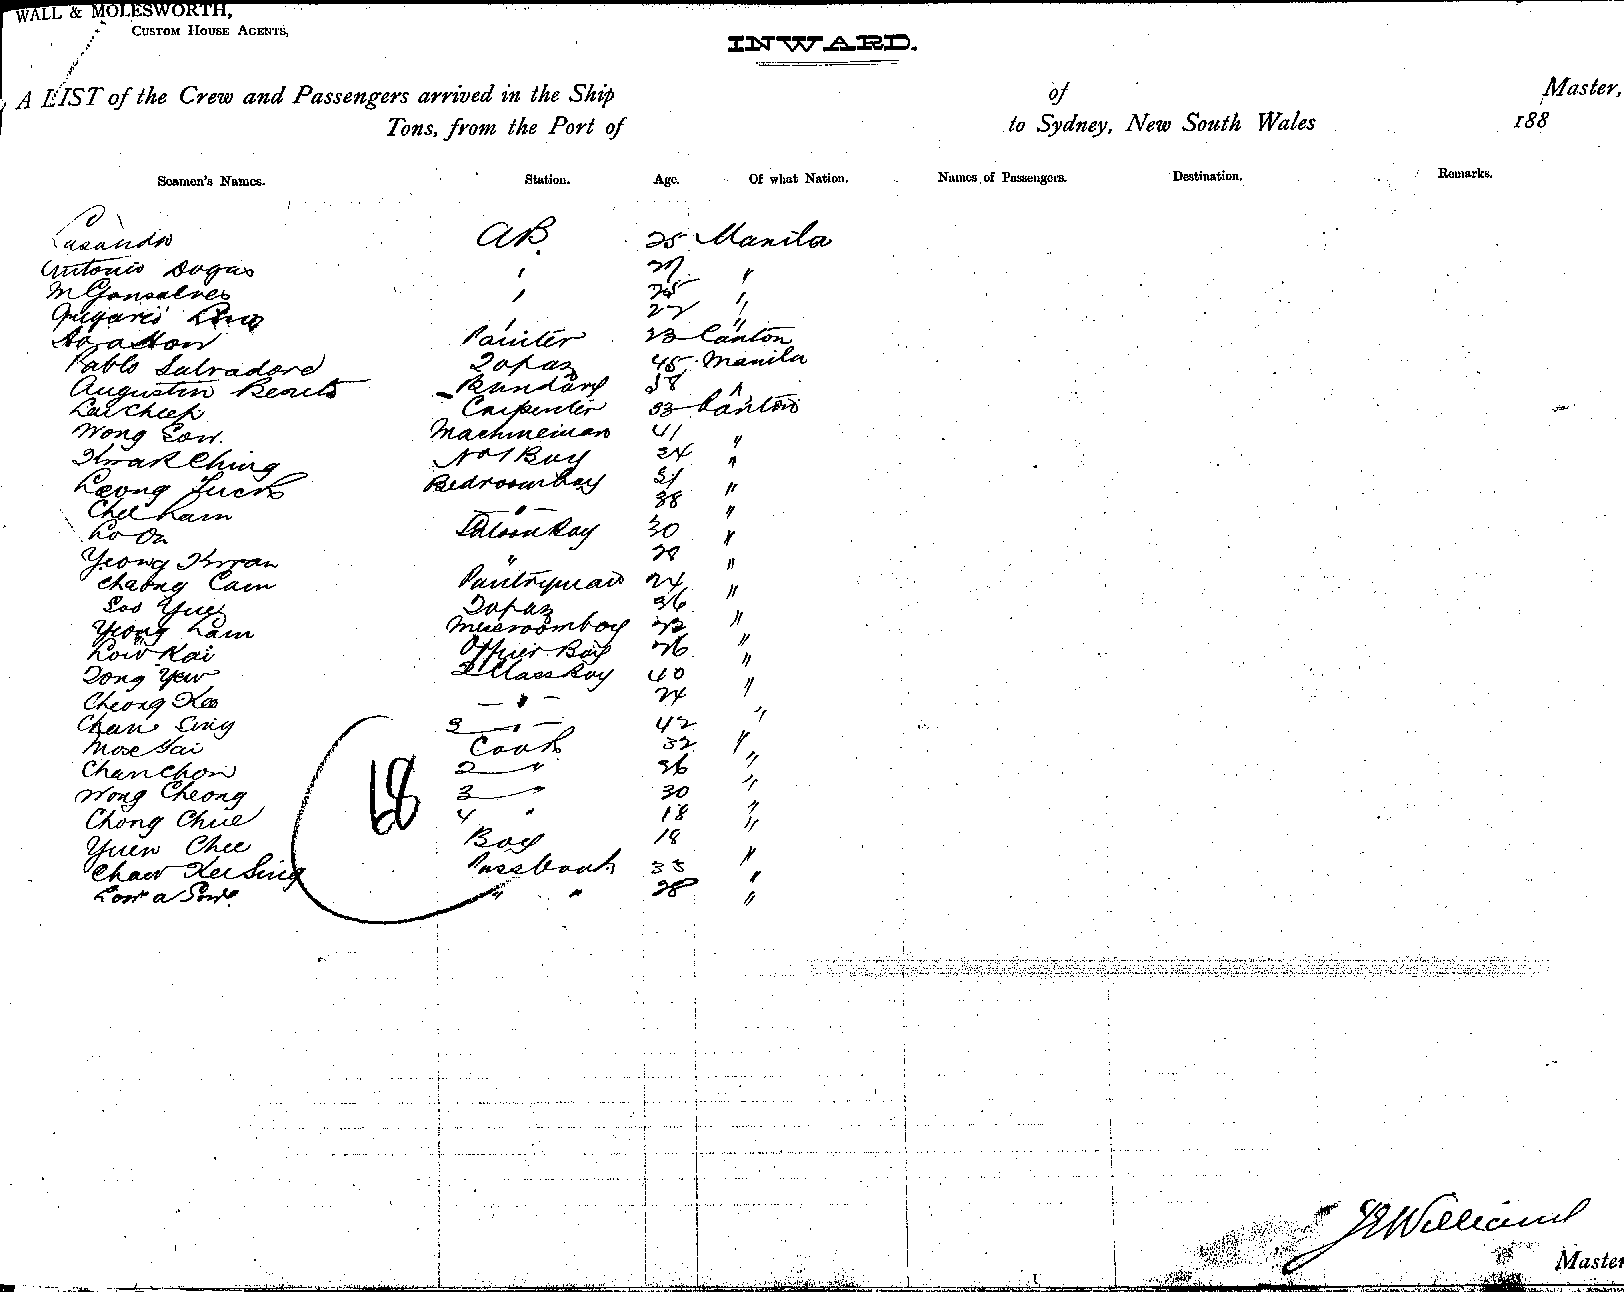 WALL & MOLESWORTH,
CUSTOM HOUSE AGENTS,
INWARD.
A LIST of the Crew and Passengers arrived in the Ship of Master,
Tons, from the Port of to Sydney, New South Wales 188
Seamen's Names. Station. Age. Of what Nation. Names of Passengers. Destination. Remarks.
Casando AB. 25 Manila
Antonio Dogus ' 27 "
M Gonsalves ' 25 "
' 27 "
Painter 23 Canton
Pablo Salvadore Topaz 45 Manila
Augustin 38 "
Lai Cheek Carpenter 33 Canton
Wong Sow. Machineman 41 "
Kwak Ching No 1 Boy 24 "
Leong Bedroomboy 31 "
Chee Lam " 38 "
Lo On Saloon Boy 30 "
Yeong Kwan " 29 "
Cheong Cam Pantryman 24 "
Soo Yue Topaz 36 "
Yeong Lam Messroomboy 23 "
Low Kai Officer Boy 26 "
Tong Yew 2 Class Boy 40 "
Cheong Kee " 24 "
Chan Sing 3 " 42 "
Cook 32 "
Chan Chon 2 " 36 "
Wong Cheong 3 " 30 "
Chong Chue 4 " 18 "
Yuen Chee Boy 18 "
Chaw Kee Sing Pass Cook 33 "
Low a Sow. " " 28 "
68
Williams
Master